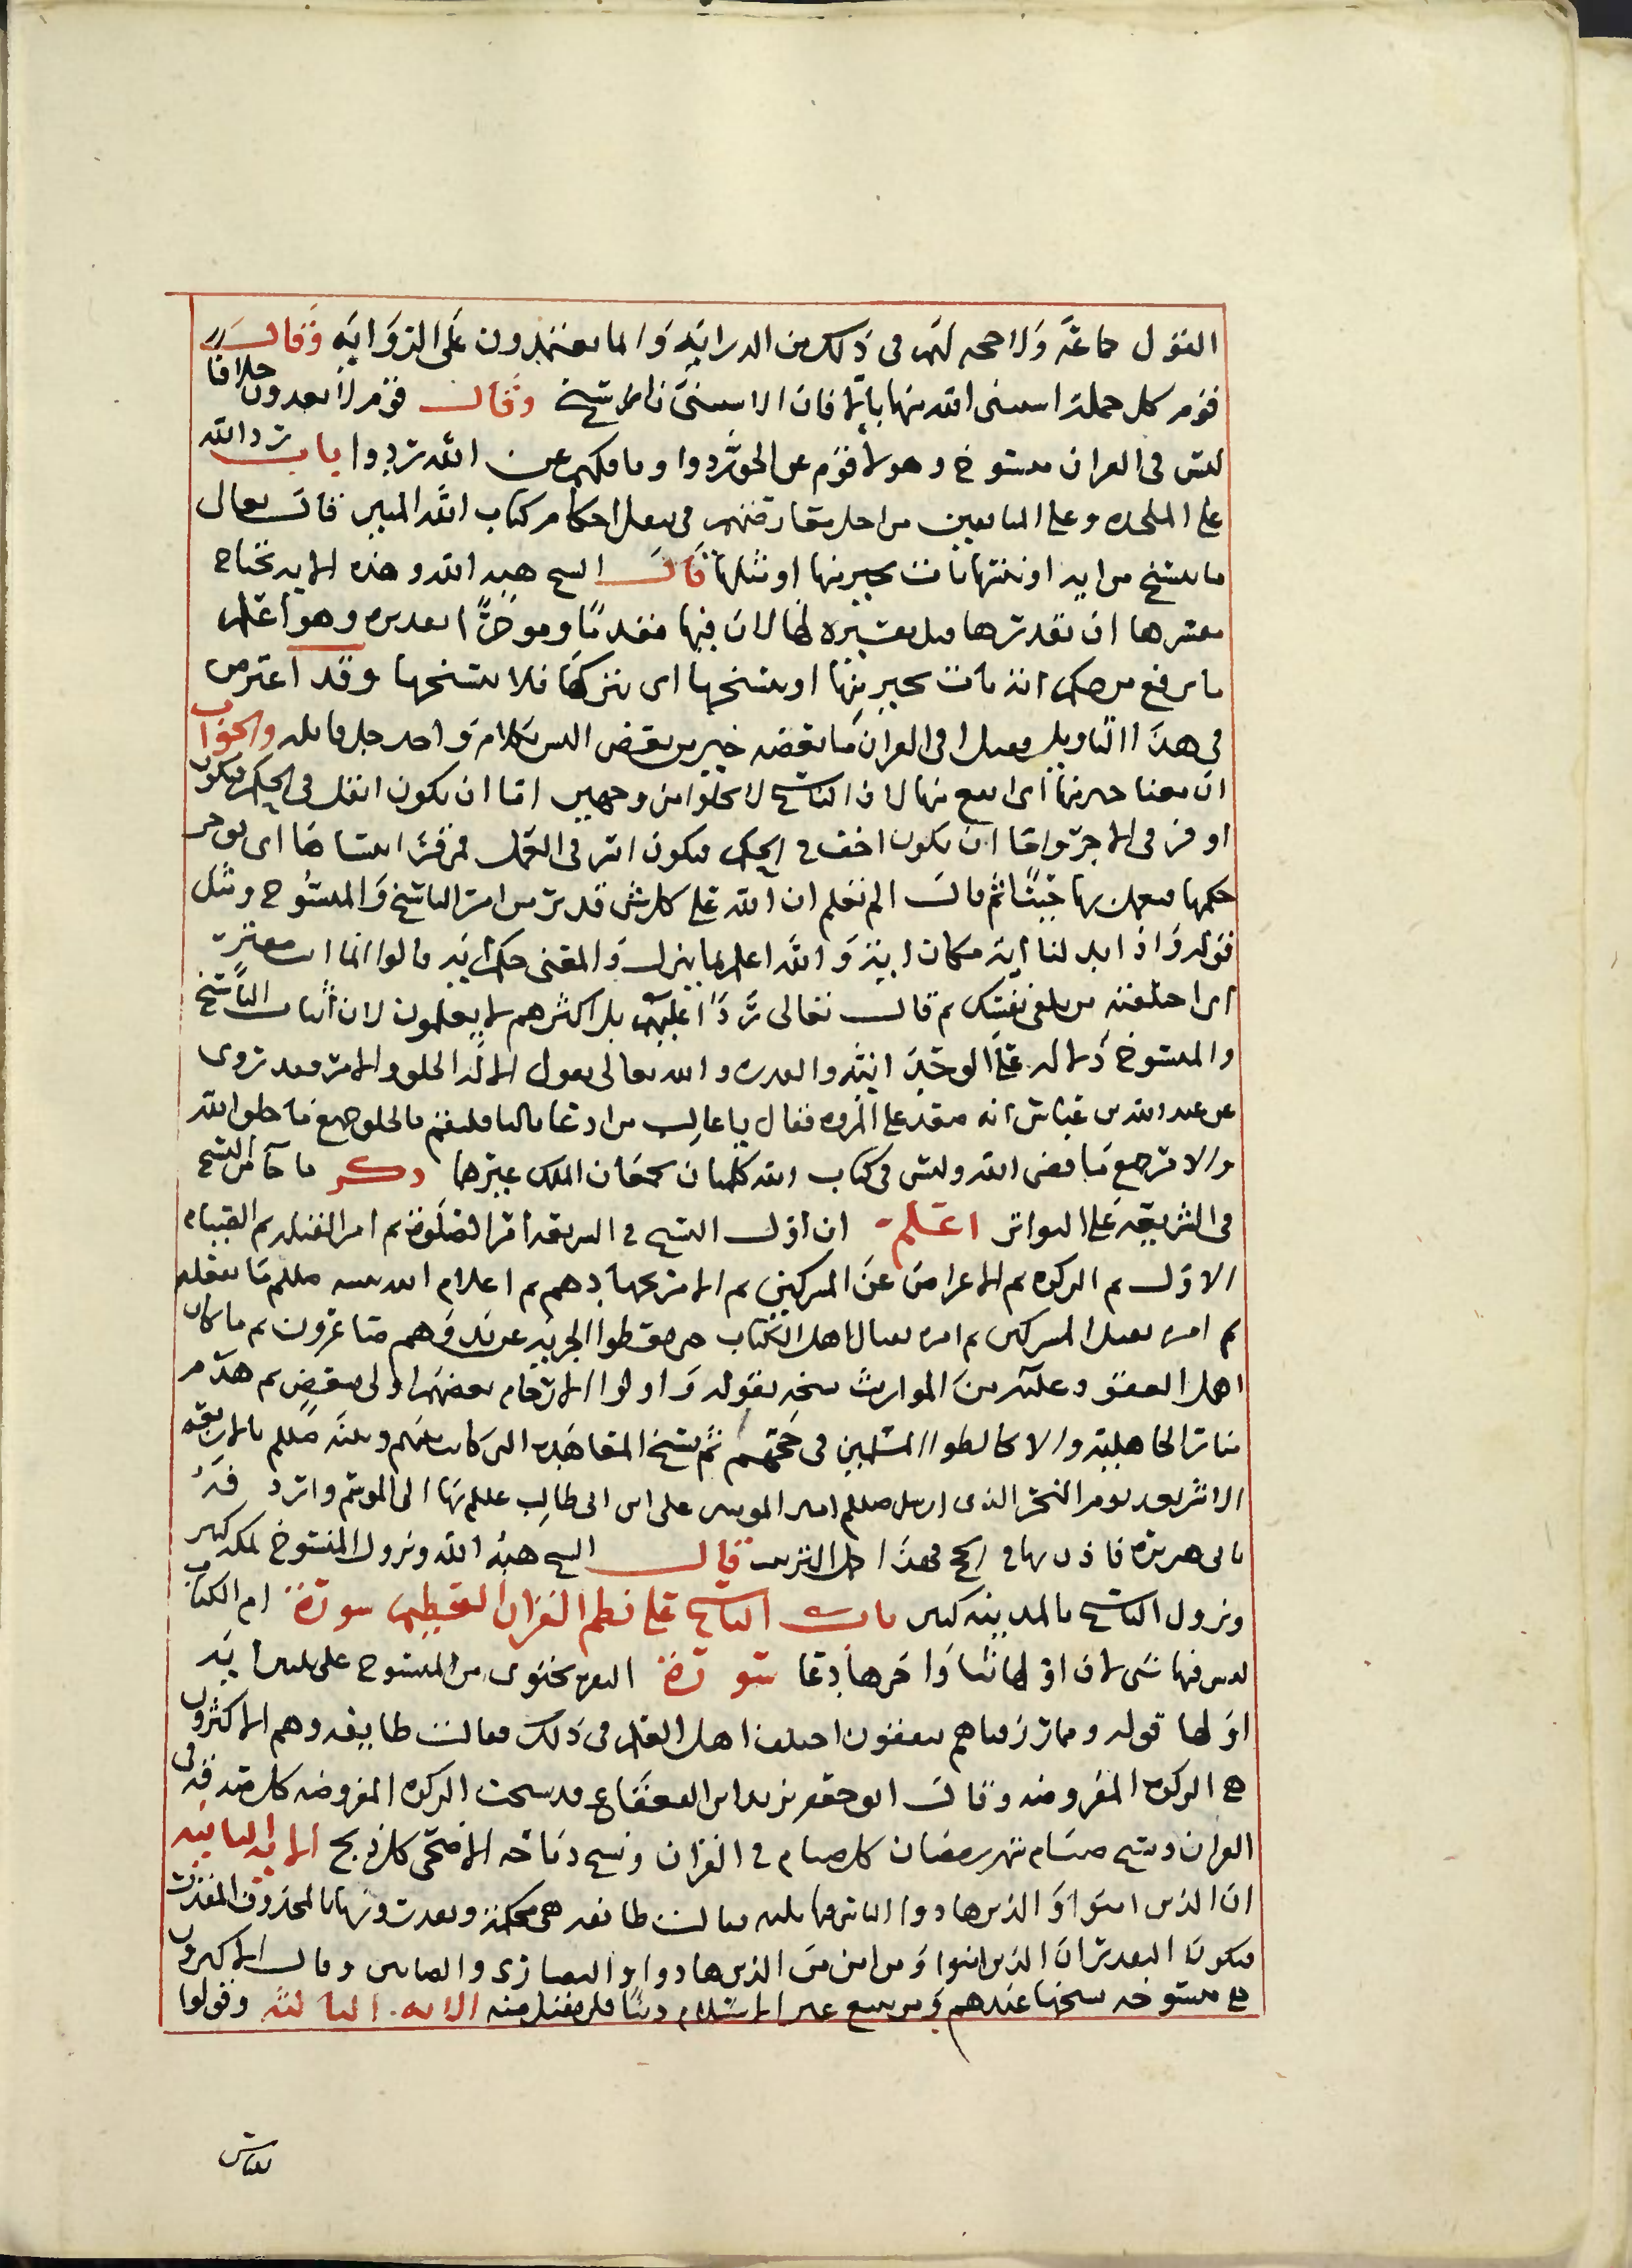 القول جماعة ولا حجة لهم في ذلك من الدراية وانما يعتمدون على الرواية وقال
قوم كل جملة استثنى الله منها بالا فان الاستثنى ناسخ وقال قوم لا يعدون خلافا
ليس في القران منسوخ وهولا قوم عن الحق ردوا وبافكهم عن الله تردوا باب رد الله
على الملحده وعلى المنافقين من اجل معارضتهم في بعض احكام كتاب الله المبين قال تعالى
ما ننسخ من اية او ننسها نات بخير منها او مثلها قال الشيخ هبة الله وهذه الاية يحتاج
مفسرها ان يقدرها قبل تفسيره لها لان فيها مقدما وموخرا تقديره وهو اعلم
ما نرفع من حكم اية نات بخير منها او ننسخها اي نتركها فلا ننسخها وقد اعترض
في هذا التاويل فقيل افي القران ما بعضه خير من بعض اليس كلام واحد جل قايله والجواب
ان معنا خير منها اي انفع منها لان الناسخ لا يخلوا من وجهين اما ان يكون اثقل في الحكم فيكون
اوفر في الاجر واما ان يكون اخف في الحكم فيكون ايسر في العمل فمن قرا ننساها اي نوخر
حكمها فيعمل بها حينا ثم قال الم تعلم ان الله على كل شي قدير من امر الناسخ والمنسوخ ومثل
قوله واذا بدلنا اية مكان اية والله اعلم بما ينزل والمعنى حكم اية قالوا انما انت مفتر
اي اختلقته من تلقى نفسك ثم قال تعالى ردا عليهم بل اكثرهم لا يعلمون لان اثبات الناسخ
والمنسوخ دلالة على الوحدانية والقدرة والله تعالى يقول الا له الخلق والامر وقد روى
عن عبد الله بن عباس انه صعد على المروه فقال يا غالب من ادعا ثالثا فليقم فالخلق جميع ما خلق الله
والامر جميع ما قضى الله وليس في كتاب الله كلمتان يجمعان الملك غيرهما ذكر ما جا من النسخ
في الشريعة على التواتر اعلم ان اول النسخ في الشريعة امر الصلوة ثم امر القبلة ثم القيام
الاول ثم الزكوة ثم الاعراض عن المشركين ثم الامر بجهادهم ثم اعلام الله نبيه صللم ما يفعله
ثم امره بقتل المشركين ثم امره بقتال اهل الكتاب حتى يعطوا الجزية عن يد وهم صاغرون ثم ما كان
اهل العقود عليه من المواريث نسخه بقوله واولوا الارحام بعضهم اولى ببعض ثم هدم
منار الجاهلية والا يخالطوا المسلمين في حجهم ثم نسخ المعاهدة التي كانت بينهم وبينه صللم بالاربعة
الاشهر بعد يوم النحر الذي ارسل صللم امير المومنين علي ابن ابي طالب عللم بها الى الموسم واردفه
بابي هريرة فاذن بها في الحج فهذا جمل الترتيب قال الشيخ هبة الله ونزول المنسوخ بمكة كثير
ونزول الناسخ بالمدينة كثير باب الناسخ على نظم القران العظيم سورة ام الكتاب
ليس فيها شي لان اولها ثنا واخرها دعا سورة البقرة تحتوي من المنسوخ على ثلثين اية
اولها قوله ومما رزقناهم ينفقون اختلف اهل العلم في ذلك فقالت طايفة وهم الاكثرون
هي الزكوة المفروضة وقال ابو جعفر يزيد ابن القعقاع قد نسخت الزكوة المفروضة كل صدقة في
القران ونسخ صيام شهر رمضان كل صيام في القران ونسخ ذباحة الاضحى كل ذبح الاية الثانية
ان الذين امنوا والذين هادوا الناس فيها قايلين فقالت طايفة هي محكمة وقدرت فيها بالمحذوف المقدرات
فيكون التقدير ان الذين امنوا ومن امن من الذين هادوا والنصارى والصابين وقال الاكثرون
هي منسوخة نسخها عندهم ومن يبتغ غير الاسلام دينا فلن يقبل منه الاية الثالثة وقولوا
للناس